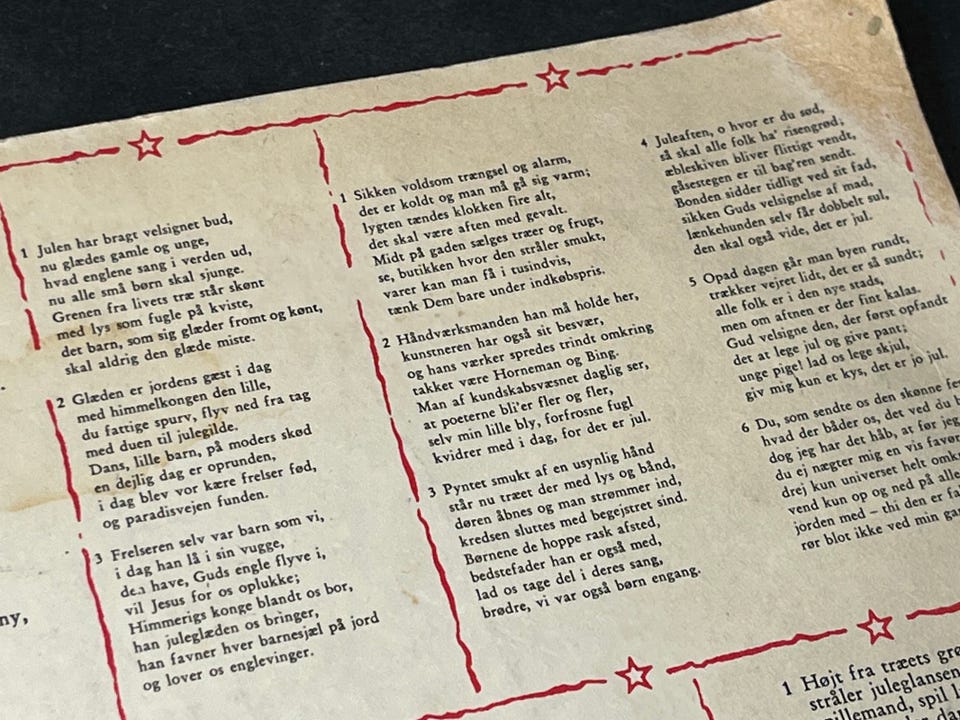 1 Julen har bragt velsignet bud,
nu glædes gamle og unge,
hvad englene sang i verden ud,
nu alle små børn skal sjunge.
Grenen fra livets træ står skønt
med lys som fugle på kviste,
det barn, som sig glæder fromt og kønt,
skal aldrig den glæde miste.
2 Glæden er jordens gæst i dag
med himmelkongen den lille,
du fattige spurv, flyv ned fra tag
med duen til julegilde.
Dans, lille barn, på moders skød
en dejlig dag er oprunden,
i dag blev vor kære frelser fød,
og paradisvejen funden.
3 Frelseren selv var barn som vi,
i dag han lå i sin vugge,
den have, Guds engle flyve i,
vil Jesus for os oplukke;
Himmerigs konge blandt os bor,
han juleglæden os bringer,
han favner hver barnesjæl på jord
og lover os englevinger.
ny,
1 Sikken voldsom trængsel og alarm,
det er koldt og man må gå sig varm;
lygten tændes klokken fire alt,
det skal være aften med gevalt.
Midt på gaden sælges træer og frugt,
se, butikken hvor den stråler smukt,
varer kan man få i tusindvis,
tænk Dem bare under indkøbspris.
2 Håndværksmanden han må holde her,
kunstneren har også sit besvær,
og hans værker spredes trindt omkring
takket være Horneman og Bing.
Man af kundskabsvæsnet daglig ser,
at poeterne bli'er fler og fler,
selv min lille bly, forfrosne fugl
kvidrer med i dag, for det er jul.
3 Pyntet smukt af en usynlig hånd
står nu træet der med lys og bånd,
døren åbnes og man strømmer ind,
kredsen sluttes med begejstret sind.
Børnene de hoppe rask afsted,
bedstefader han er også med,
lad os tage del i deres sang,
brødre, vi var også børn engang.
4 Juleaften, o hvor er du sød,
så skal alle folk ha' risengrød;
æbleskiven bliver flittigt vendt,
gåsestegen er til bag'ren sendt.
Bonden sidder tidligt ved sit fad,
sikken Guds velsignelse af mad,
lænkehunden selv får dobbelt sul,
den skal også vide, det er jul.
5 Opad dagen går man byen rundt,
trækker vejret lidt, det er så sundt;
alle folk er i den nye stads,
men om aftnen er der fint kalas.
Gud velsigne den, der først opfandt
det at lege jul og give pant;
unge pige! lad os lege skjul,
giv mig kun et kys, det er jo jul.
6 Du, som sendte os den skønne
hvad der båder os, det ved du
dog jeg har det håb, at før jeg
du ej nægter mig en vis
drej kun universet helt
vend kun op og ned på
jorden med – thi den er
rør blot ikke ved min
1 Højt fra træets
stråler juleglansen
spil